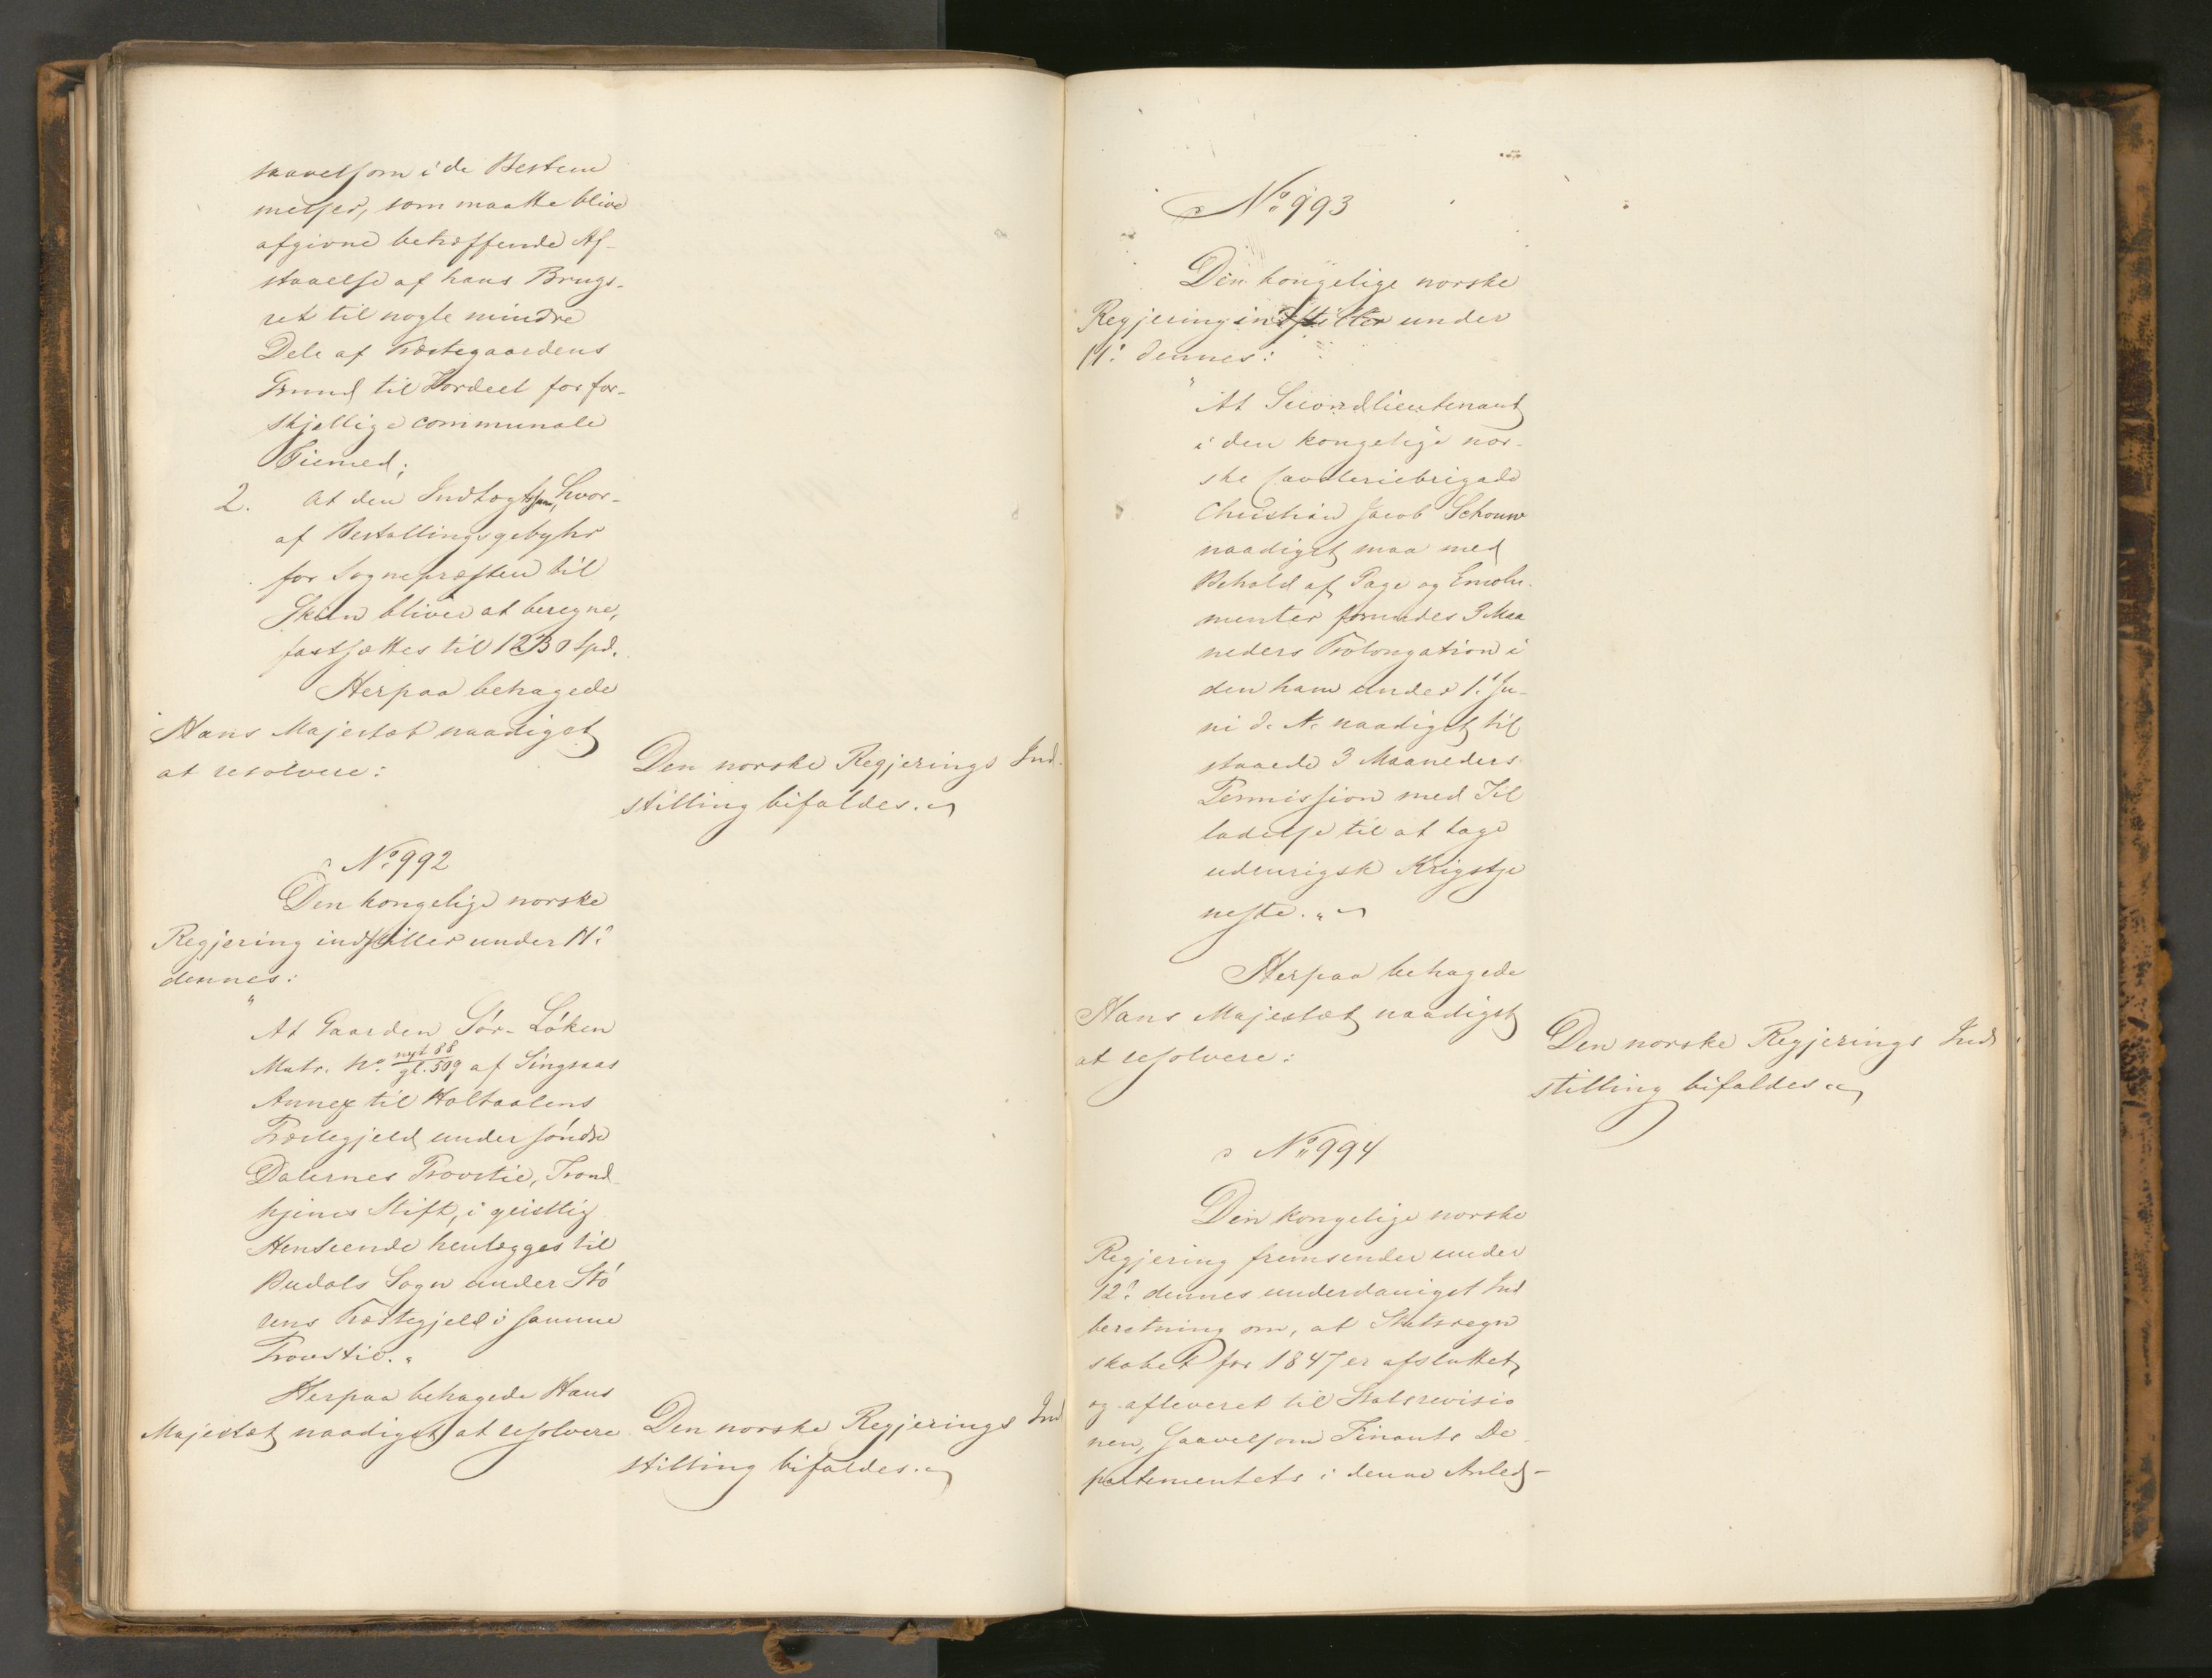 saavelsom i de Bestem
melser, som maatte blive
afgivne betræffende Af-
staaelse af hans Brugs-
ret til nogle mindre
Dele af Præstegaardens
Grund til Fordeel for for-
skjellige communale
Øiemed;
2. At den Indtægtssum, hvor-
af Bestallingsgebyhr
for Sognepræsten til
Skien bliver at beregne,
fastsættes til 1230 Spd.
Herpaa behagede
Hans Majestæt naadigst
at resolvere:
Den norske Regjerings Ind-
stilling bifaldes.
No. 992
Den kongelige norske
Regjering indstiller under 11.
dennes:
"
At Gaarden Sør-Løken
Matr. No. nyt 88
gl. 509 af Singsaas
Annex til Holtaalens
Præstegjeld under søndre
Dalernes Provstie, Trond-
hjems Stift, i geistlig
Henseende henlægges til
Budals Sogn under Stø
rens Præstegjeld i samme
Provstie."
Herpaa behagede Hans
Majestæt naadigst at resolvere
Den norske Regjerings Ind
stilling bifaldes.
No. 993
Den kongelige norske
Regjering indstiller under
11. dennes:
"
At Secondlieutenant
i den kongelige nor-
ske Cavaleriebrigade
Christian Jacob Schouw
naadigst maa med
Behold af Gage og Emolu-
menter forundes 3 Maa
neders Prolongation i
den ham under 1. Ju-
ni d. A. naadigst til
staaede 3 Maaneders
Permission med Til
ladelse til at tage
udenrigsk Krigstje
neste."
Herpaa behagede
Hans Majestæt naadigst
at resolvere:
Den norske Regjerings Ind
stilling bifaldes
No. 994
Den kongelige norske
Regjering fremsender under
12. dennes underdanigst Ind
beretning om, at Statsregn
skabet for 1847 er afsluttet
og afleveret til Statsrevisio
nen, saavelsom Finants De
partementets i denne Anled-